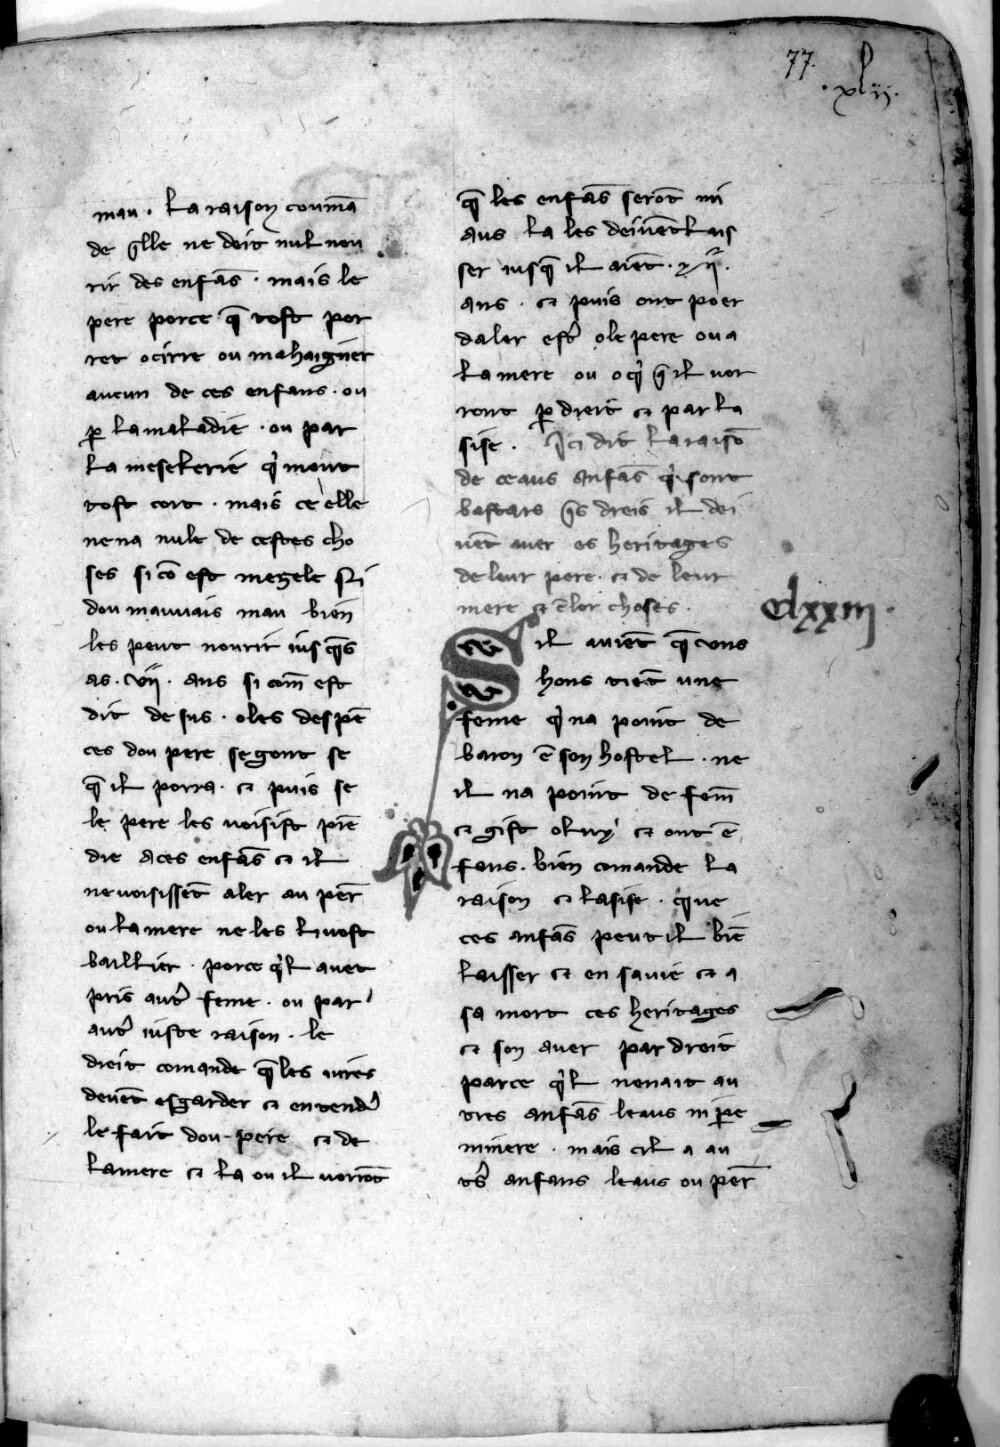 77.
.xlii.
mau. La raison coumā
de q̃lle ne deit nul nou
rir des enfās. mais le
pere porce q̄ tost por
ret ocirre ou mahaignier
aucun de ces enfans. ou
ꝑ la maladie. ou par
la meselerie q̇ mout
tost cort. mais ce elle
ne na nule de cestes cho
ses si cō est megele Ni
dou mauvais mau bien
les peut nourir iusq̄s
as. vii. ans si com̄ est
dit desus. oles despē
ces dou pere segont se
q̄ il porra. ⁊ puis se
le pere les voisist prē
dre a ces enfās ⁊ il
ne voisissēt aler au per̄
ou la mere ne les livost
baillier. porce q̇l avet
pris aut̾ feme. ou par
aut̾ iuste raison. le
dreit comande q̄ les iures
devēt esgarder ⁊ entend̾
le fait dou pere ⁊ de
la mere ⁊ la ou il vorrōt
q̄ les enfās serōt mi
aus la les deivēt lais
ser iusq̄ il aiēt. xii.
ans. ⁊ puis ont poer
daler est̾ o le pere ou a
la mere ou o q̇ q̃ il vor
ront ꝑ dreit ⁊ par la
sise. Ici dit la raisō
de ceaus anfās q̇ sont
bastars q̃s dreis il dei
vēt aver es heritages
de leur pere. ⁊ de leur
mere ⁊ ē lor choses.
clxxiii.
Sil avient q̄ uns
hons tiēt une
feme q̇ na point de
baron ē son hostel. ne
il na point de fem̄
⁊ gist o luy ⁊ ont ē
fans. bien comande la
raison ⁊ lasise. q̇ ue
ces anfās peut il biē
laisser ⁊ en sa vie ⁊ a
sa mort ces heritages
⁊ son aver par dreit
parce q̇l nenait au
tres anfās leaus ni pe
ni mere. mais cil a au
ts̾ anfans leaus ou per̄